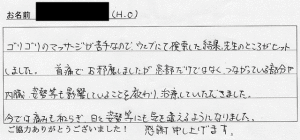 お名前 (H.O)
ゴリゴリのマッサージが苦手なので、ウェブにて検索した結果、先生のところがヒット
しました。 首痛でお邪魔しましたが、患部だけではなく、つながっている部分や
内臓、姿勢等も影響していることを教わり、治療していただきました。
今では痛みも和らぎ、日々姿勢等にも気を遣えるようになりました。
ご協力ありがとうございました! 感謝申し上げます。